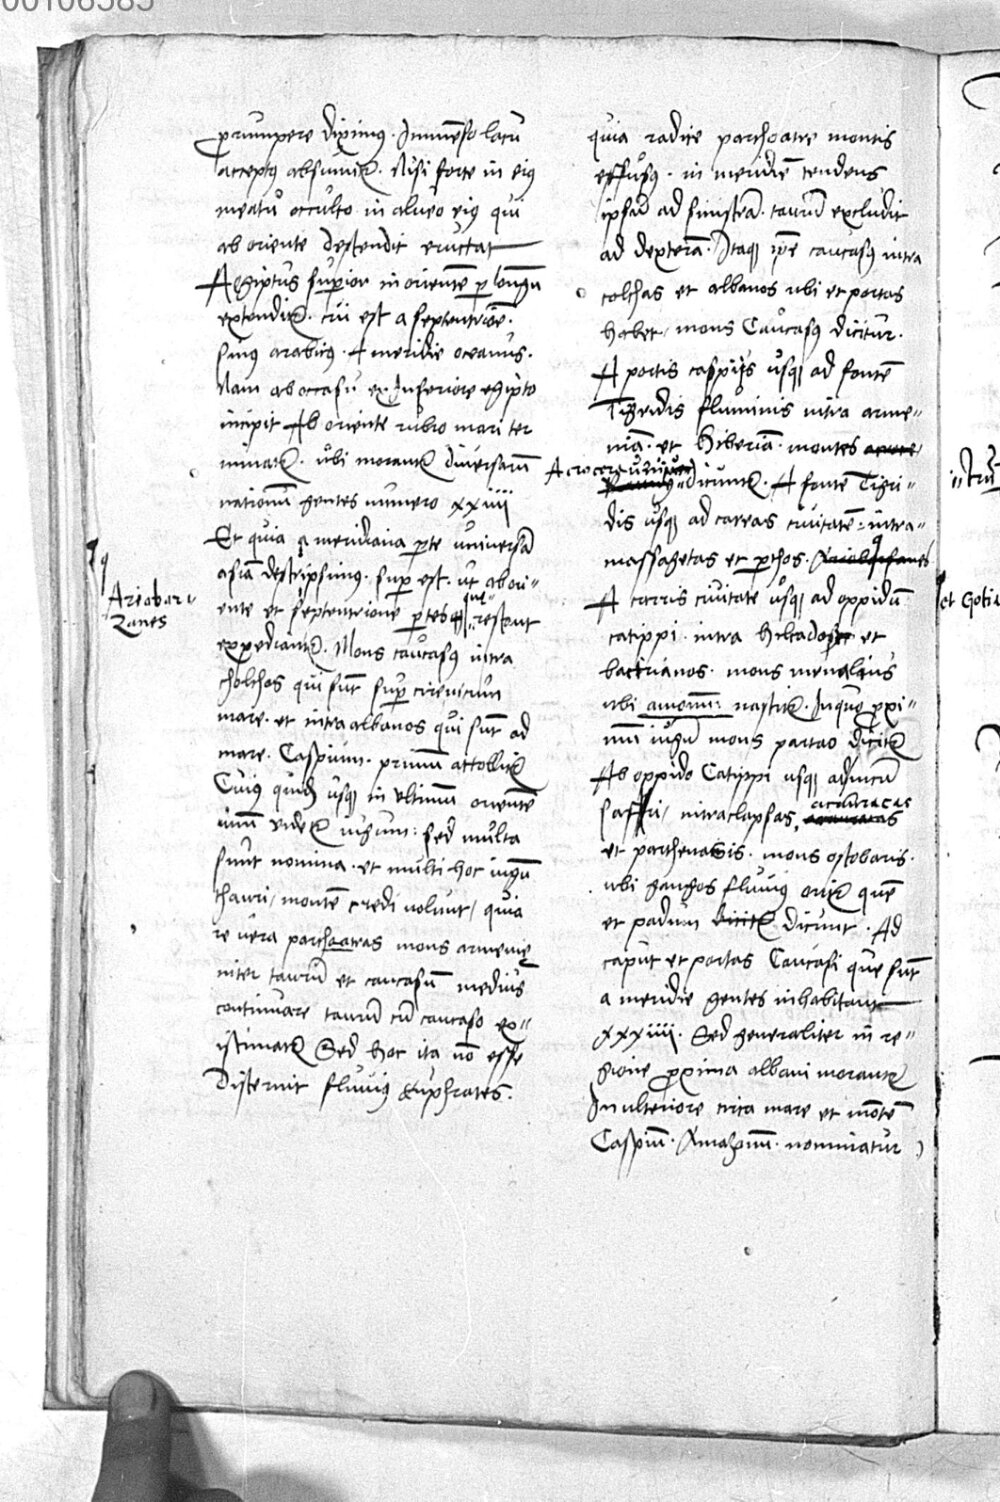 00106585
prumpere diximus. Immēso lacu
acceptus absumitur. Nisi forte in eius
meatu occulto in alueo eius qui
ab oriente descendit eructat
Aegiptus superior in orientē per longum
extenditur. cui est a septentrione.
sinus arabicus. A meridie oceanus.
Nam ab occasu ex Inferiore egipto
incipit Ab oriente rubro mari ter
minatur. ubi morantur diuersarū
nationum gentes numero xxiiii
Et quia a meridiana parte uniuersā
asiā descripsimus. super est. ut ab ori"
ente et septentrione partes que restant
expediantur. Mons caucasus intra
cholchos qui sunt super cimericum
mare. et intra albanos qui sūt ad
mare. Caspium. primum attollitur
Cuius quidem usque in ultimum orientē
unum videtur iugum: sed multa
sunt nomina. et multi hoc iugum
thauri, montē credi uolunt, quia
re uera parchoatras mons armenie
inter taurū et caucasum medius
continuare taurū cū caucaso ex"
istimatur Sed hoc ita nō esse
discernit fluuius Euphrates.
Ariobar"
zanes
quia radice parchoatre montis
effusus. in meridiē tendens
ipsum ad sinistrā. taurū excludit
ad dexterā. Itaque ipse caucasus intra
colchas et albanos ubi et portas
habet, mons Caucasus dicitur.
A portis caspiis usque ad fontē
Tigridis fluminis intra arme"
niā. et Hiberiā. montes
Acroceraunii
dicuntur. A fonte Tigri"
dis usque ad carras ciuitatē: intra"
massagetas et parthos.
A carris ciuitate usque ad oppidum
catippi. intra et
bactrianos. mons menalius
ubi amomum: nascitur. In quo proxi"
mū iugū mons partao dicitur
Ab oppido Catippi usque ad uicū
saffri, intra clapsas,
et parthenasis. mons ostobaris.
ubi ganges fluuius oritur quē
et padum dicitur dicunt. Ad
caput et portas Caucasi que sūt
a meridie gentes inhabitant
xxxiiii. Sed generaliter in re"
gione proxima albani morantur
In ulteriore circa mare et montē
Caspiū. Amazonū. nominatur
et Goti